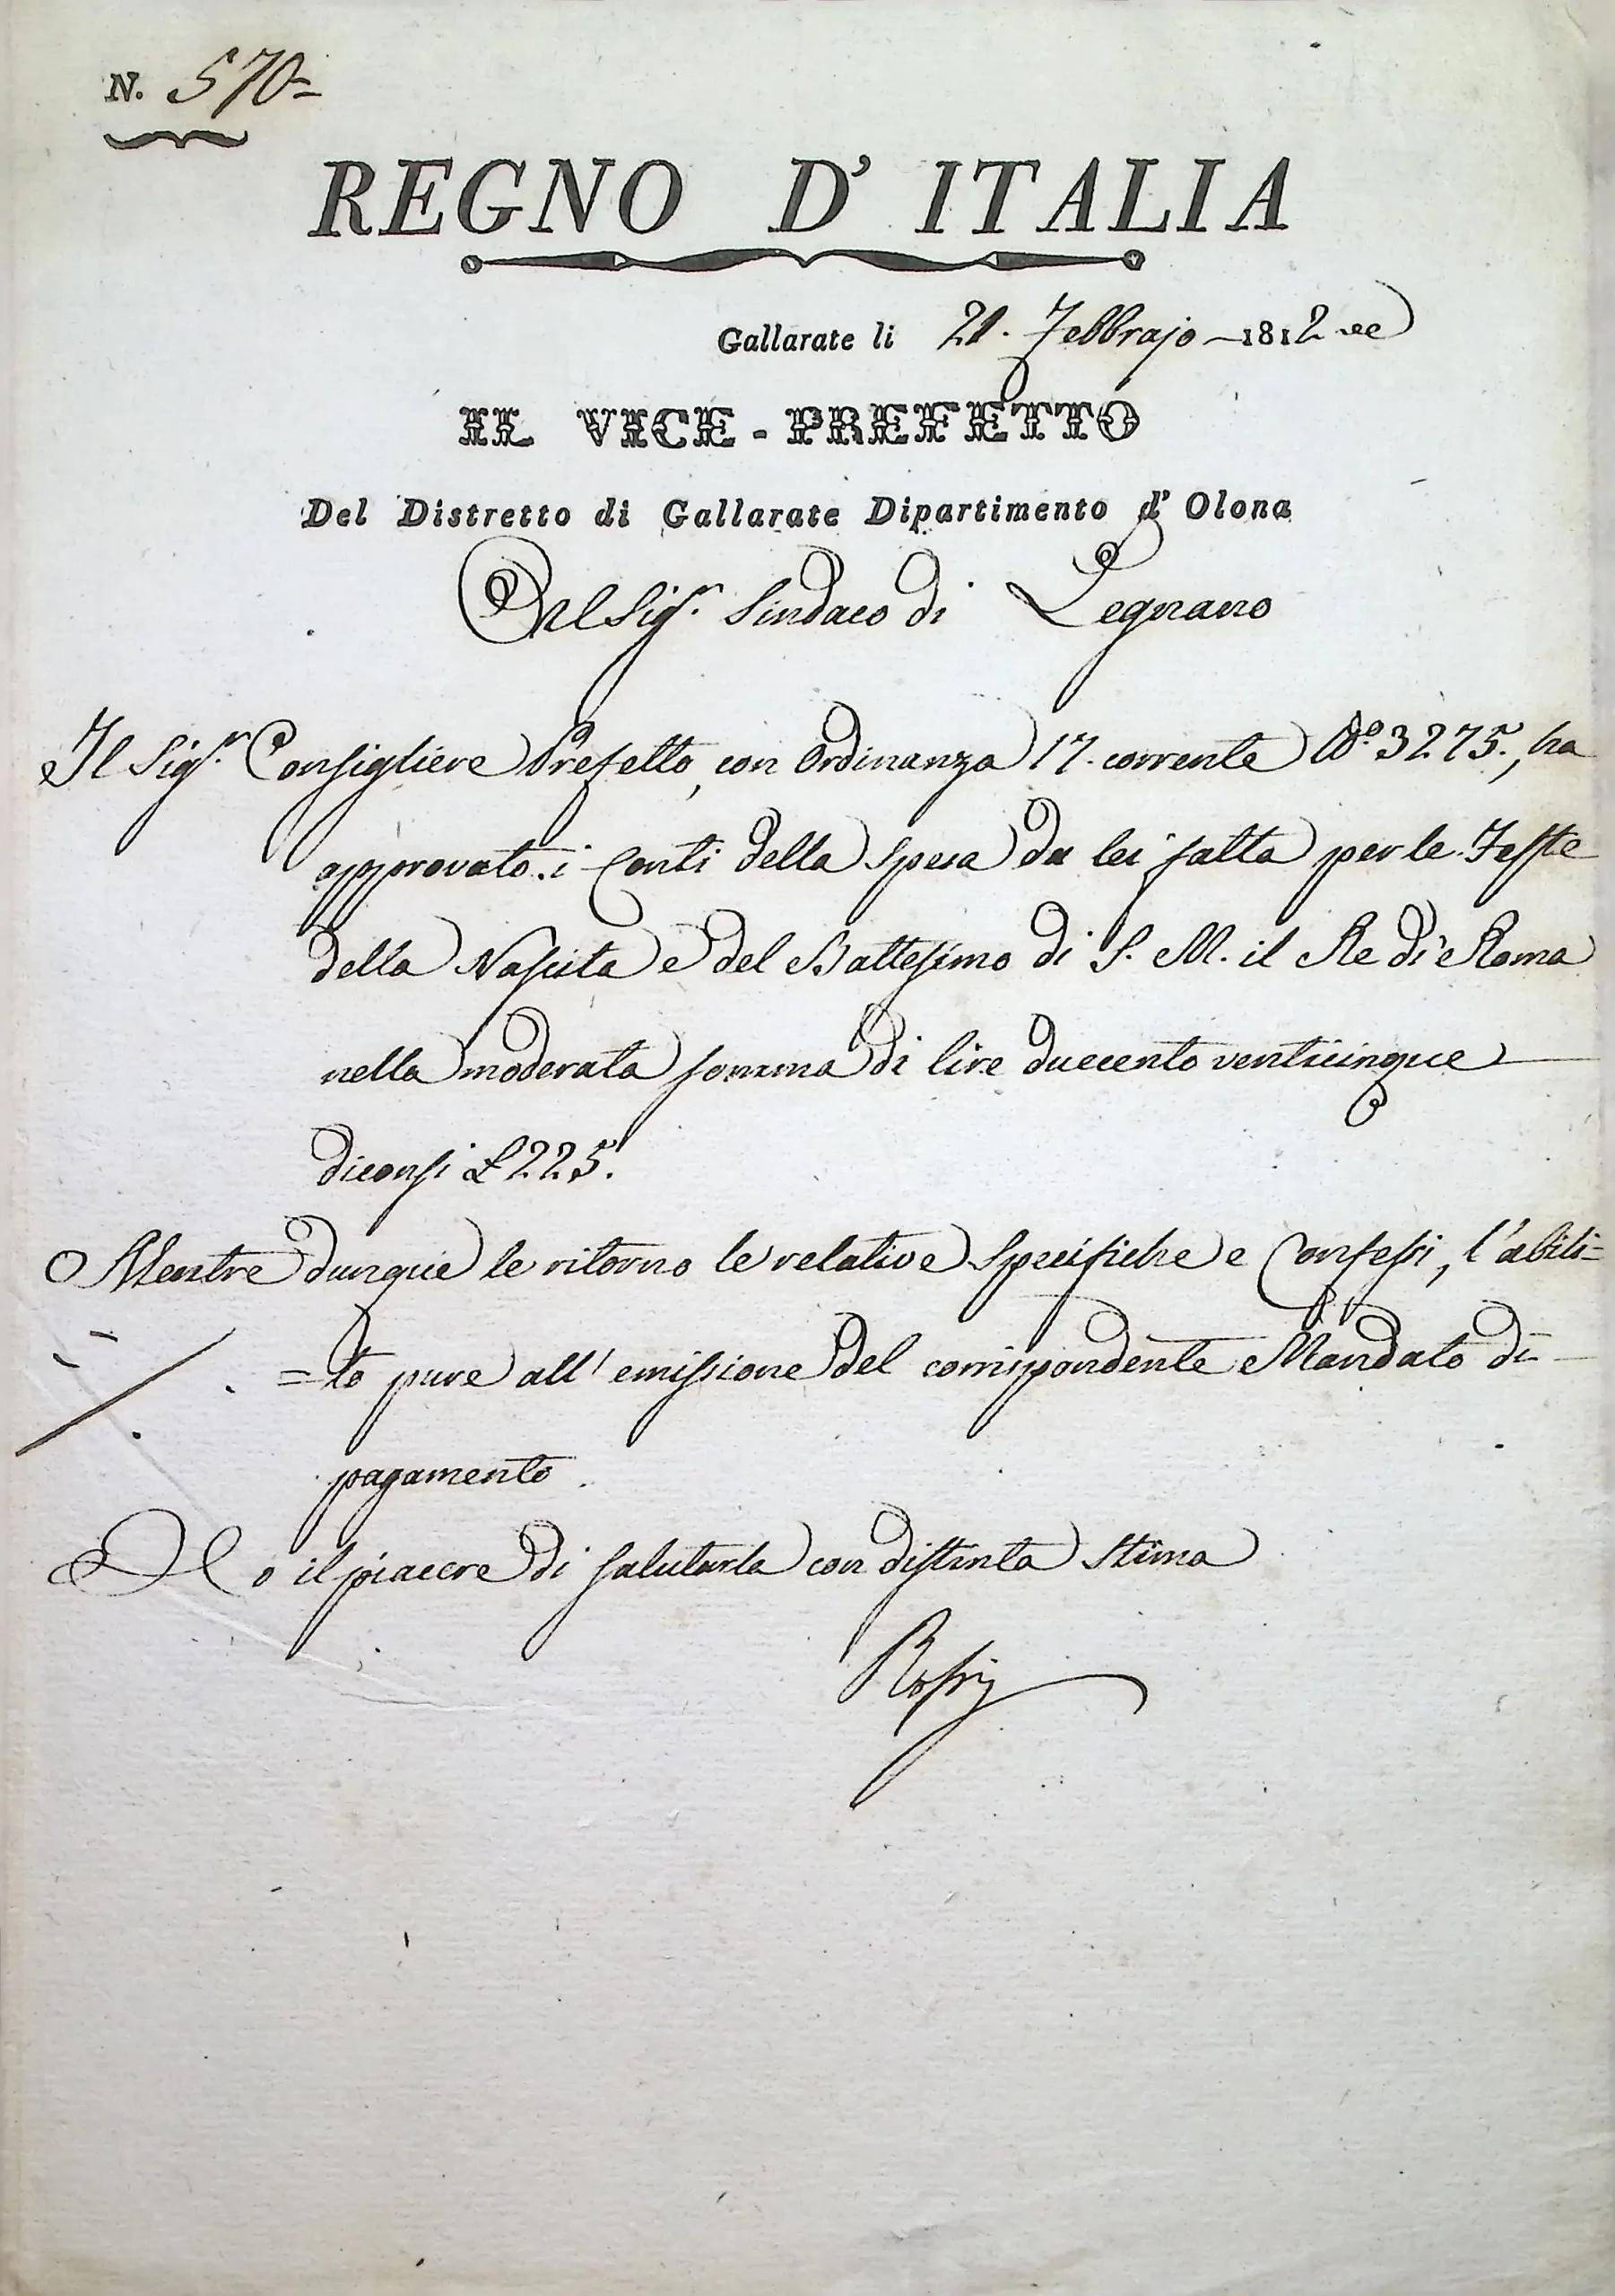 N. 570=
REGNO D' ITALIA
Gallarate li 21. Febbrajo 1812
IL VICE-PREFETTO
Del Distretto di Gallarate Dipartimento d' Olona
Al Sig.r Sindaco di Legnano
Il Sig.r Consigliere Prefetto, con Ordinanza 17. corrente N.o 3275., ha
approvato i Conti della spesa da lei fatta per le Feste
della Nascita e del Battesimo di S. M. il Re di Roma
nella moderata somma di lire duecento venticinque
diconsi £ 225.
Mentre dunque le ritorno le relative Specifiche e Confessi, l'abili=
=to pure all' emissione del corrispondente Mandato di
pagamento.
Ho il piacere di salutarla con distinta stima
Rossi